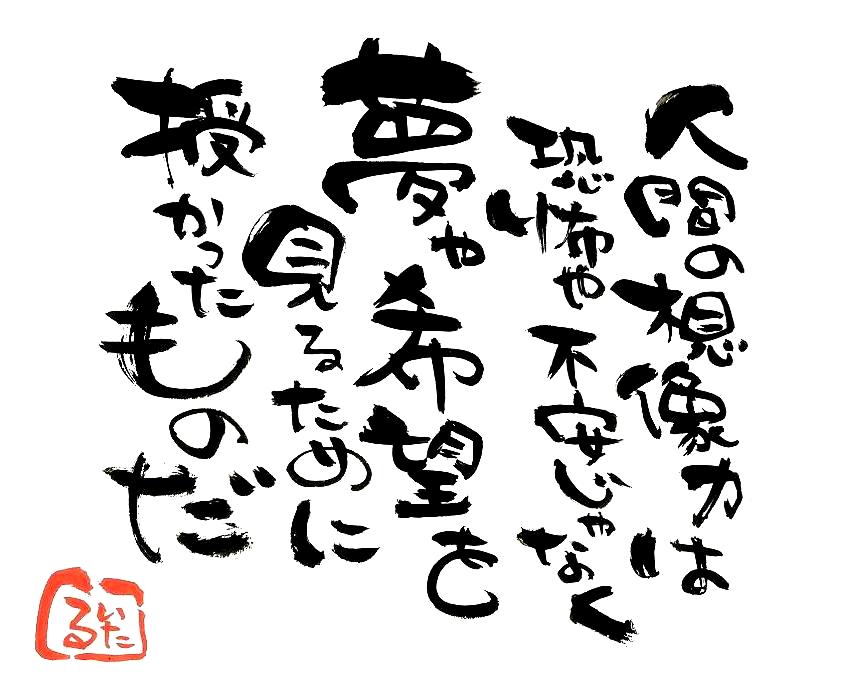 人間の想像力は
恐怖や不安じゃなく
夢や希望を
見るために
授かった
ものだ